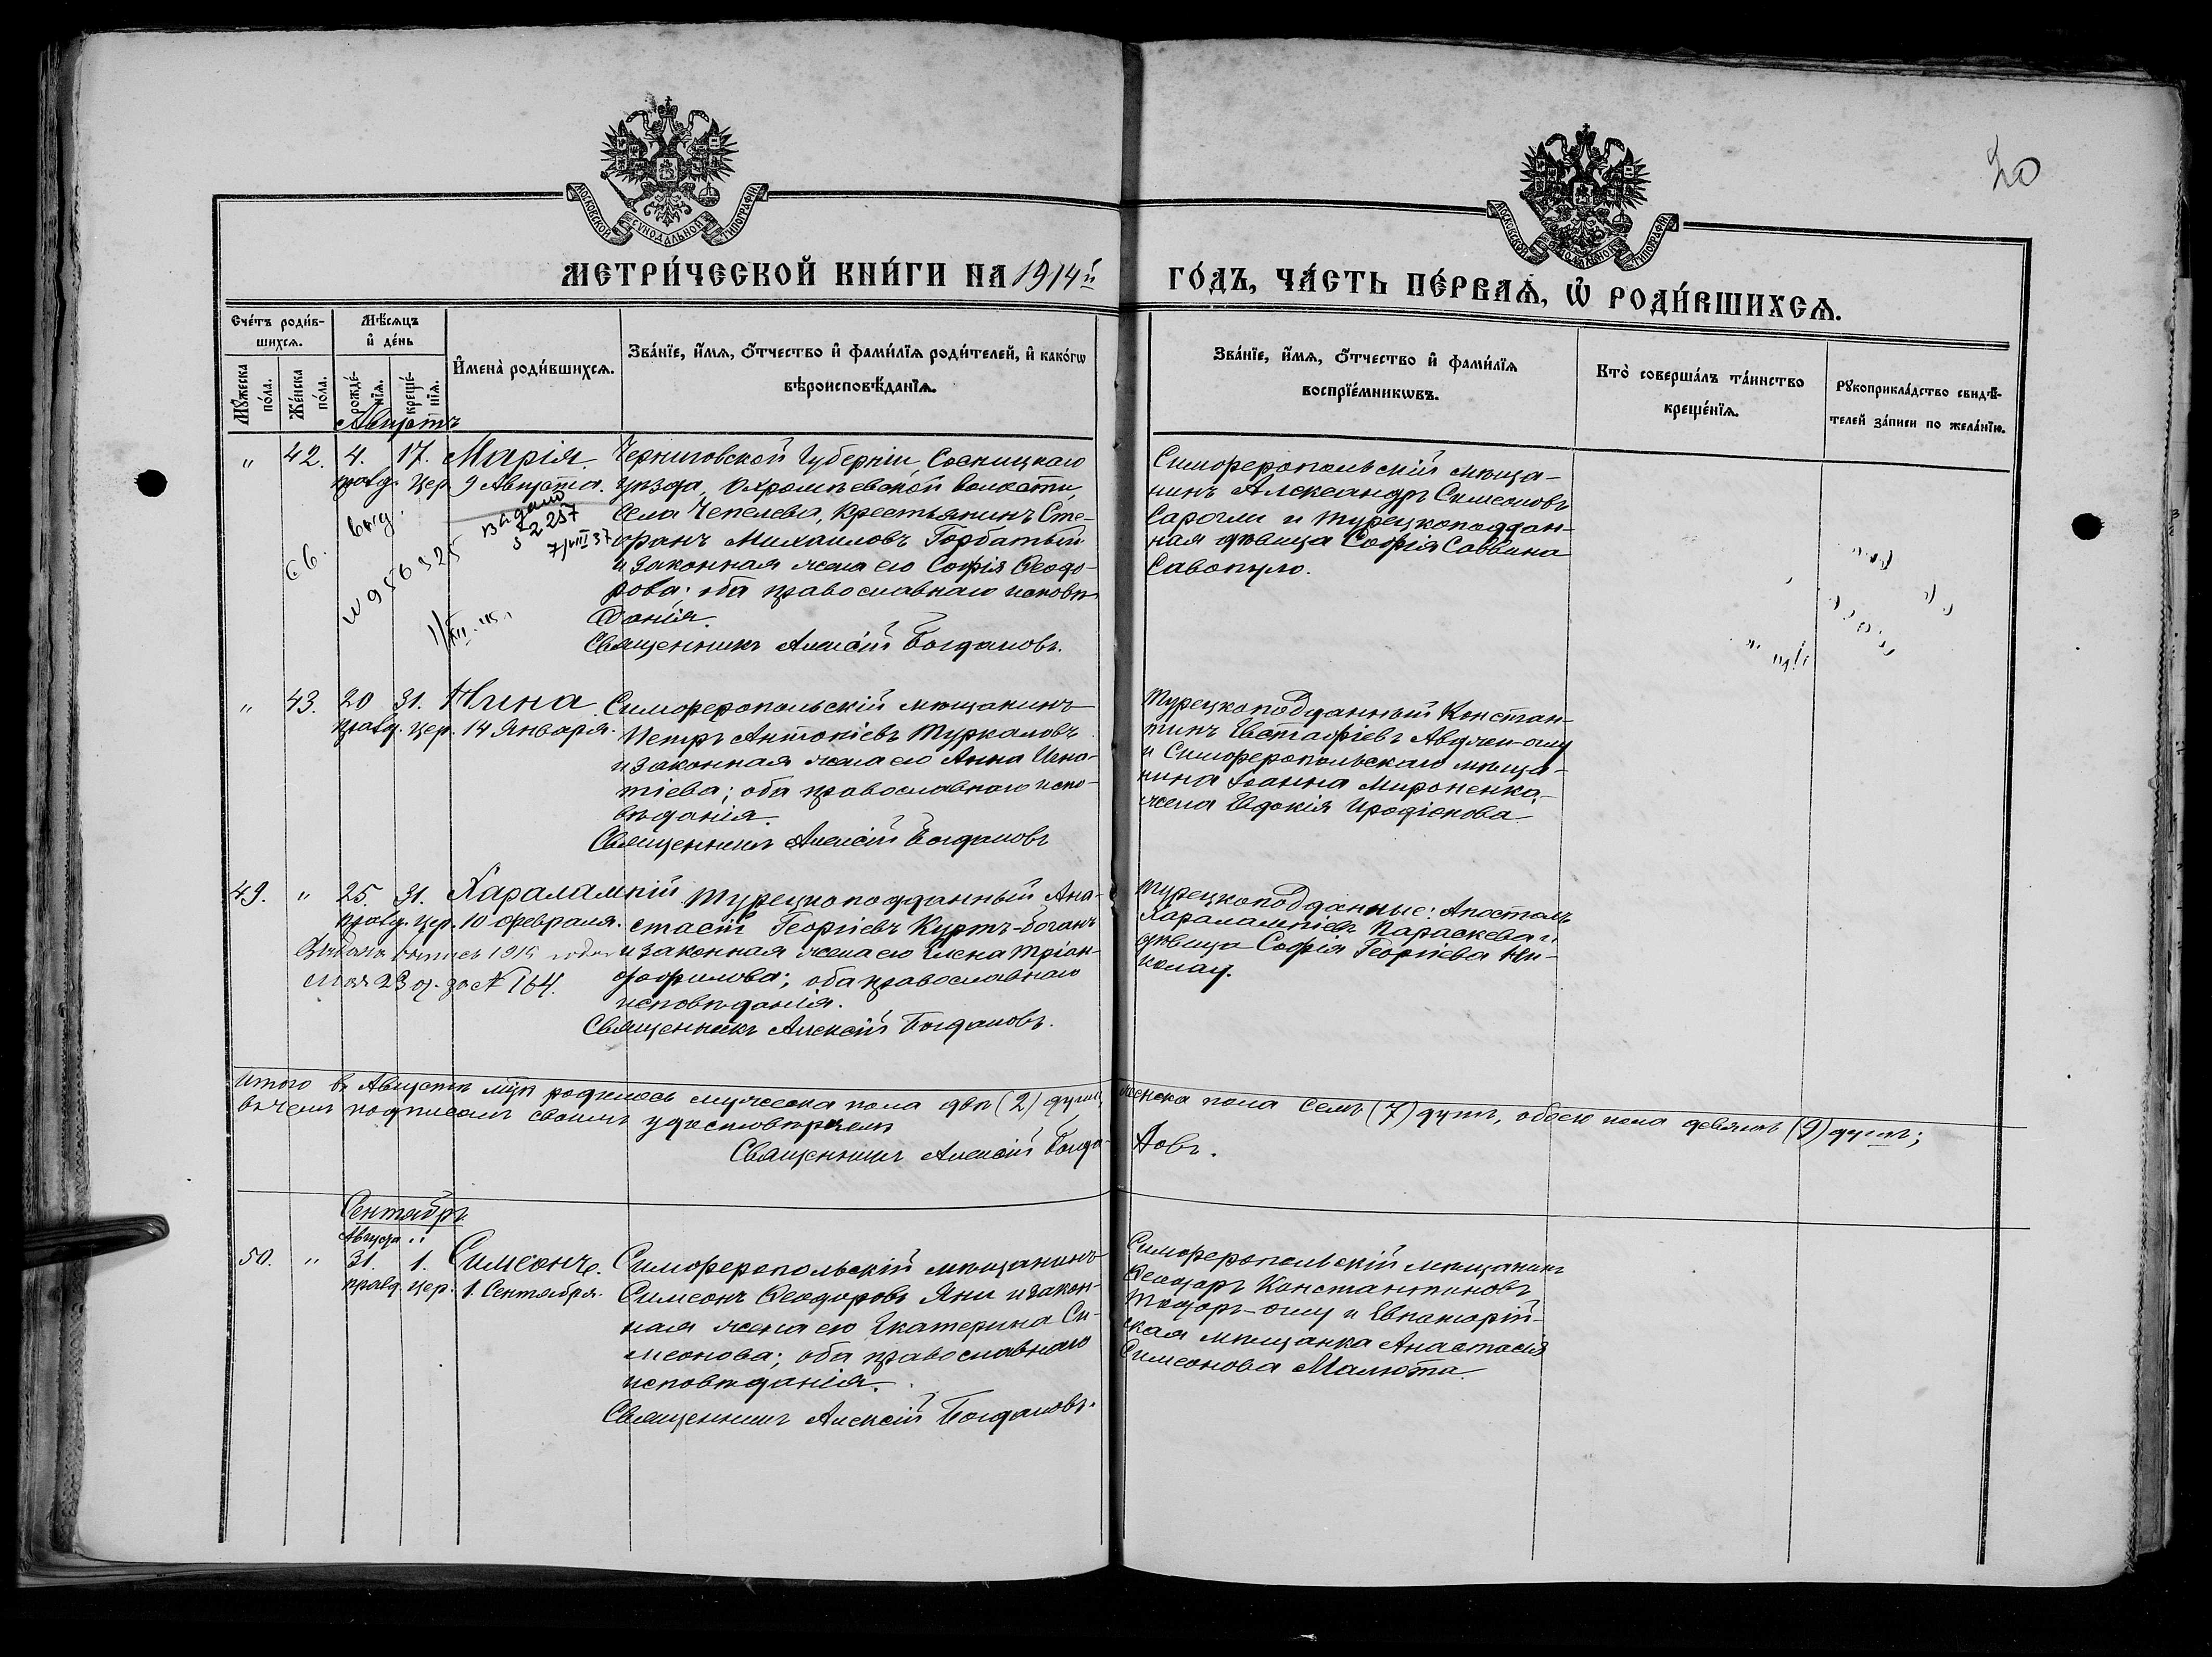 20
МОСКОВСКОЙ СѴНОДАЛЬНОЙ ТИПОГРАФІИ
МОСКОВСКОЙ СѴНОДАЛЬНОЙ ТИПОГРАФІИ
МЕТРИ́ЧЕСКОЙ КНИ́ГИ НА 1914й ГО́ДЪ, ЧА́СТЬ ПЕ́РВАѦ, Ѡ҆ РОДИ́ВШИХСѦ.
Сче́тъ роди́в-
шихсѧ.
Мѣ́сѧцъ
и҆ де́нь
Мꙋ́жеска
по́ла.
Же́нска
по́ла.
рожде́-
нїѧ.
креще́-
нїѧ.
И҆мена̀ роди́вшихсѧ.
Зва́нїе, и҆́мѧ, о҆́тчество и҆ фами́лїѧ роди́телей, и҆ како́гѡ
вѣроисповѣ́данїѧ.
Зва́нїе, и҆́мѧ, о҆́тчество и҆ фами́лїѧ
воспрїе́мникѡвъ.
Кто̀ соверша́лъ та́инство
креще́нїѧ.
Рꙋкоприкла́дство свидѣ́-
телей за́писи по жела́нїю.
Августъ
" 42. 4. 17. Марія.
правд. цер. 9 Августа.
выд.
выдано
52257
7/VIII 37
с б.
1/XII-45 г
Черниговской Губерніи, Сосницкаго
уѣзда, Охромѣевской волости,
села Чепелева, крестьянинъ Сте-
фанъ Михаиловъ Горбатый
и законная жена его Софія Ѳеодо-
рова; оба православнаго исповѣ-
данія.
Священникъ Алексій Богдановъ.
Симферопольскій мѣща-
нинъ Александръ Симеоновъ
Сарогли и турецкоподдан-
ная дѣвица Софія Саввина
Савопуло.
" 43. 20 31. Нина.
правд. цер. 14 Января.
Симферопольскій мѣщанинъ
Петръ Антоніевъ Туркаловъ
и законная жена его Анна Игна-
тіева; оба православнаго испо-
вѣданія.
Священникъ Алексій Богдановъ
Турецкоподданный Констан-
тинъ Евстафіевъ Авджи-оглу
и Симферопольскаго мѣща-
нина Іоанна Мироненка
жена Евдокія Иродіонова
49. " 25. 31. Харалампій
правд. цер. 10 февраля.
1915 года
23 д. за № 164.
Турецкоподданный Ана-
стасій Георгіевъ Куртъ-боганъ
и законная жена его Елена Тріан-
дофилова; оба православнаго
исповѣданія.
Священникъ Алексій Богдановъ.
Турецкоподданные: Апостолъ
Харалампіевъ Параскева и
дѣвица Софія Георгіева Ни-
колау.
Итого въ Августѣ мцѣ родилось мужеска пола двѣ (2) души, женска пола семь (7) душъ, обоего пола девять (9) душъ;
въ чемъ подписомъ своимъ удостовѣряемъ
Священникъ Алексій Богда- новъ.
Сентябрь
Августа "
50. " 31. 1. Симеонъ.
правд. цер. 1. Сентября.
Симферопольскій мѣщанинъ
Симеонъ Ѳеодоровъ Яни и закон-
ная жена его Екатерина Си-
меонова; оба православнаго
исповѣданія.
Священникъ Алексій Богдановъ.
Симферопольскій мѣщанинъ
Ѳеодоръ Константиновъ
Тодоръ-оглу и Евпаторій-
ская мѣщанка Анастасія
Симеонова Малюта.